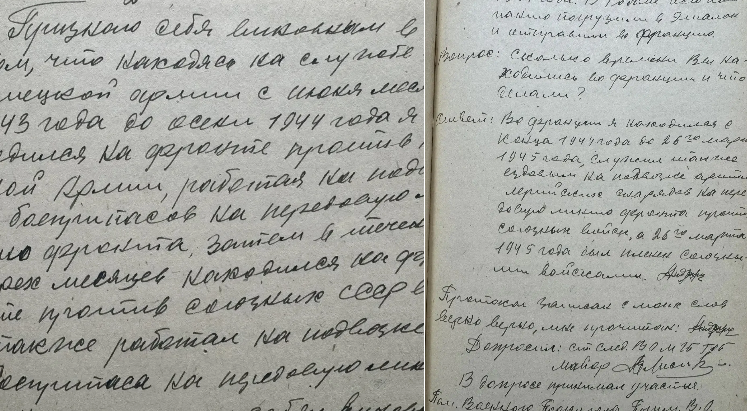 Признаю себя виновным в
ом, что находясь на службе
мецкой армии с июня мес
43 года до осени 1944 года я
одился на фронте против
ной Армии, работая на подв
боеприпасов на передовую л
ию фронта. Затем в течен
рех месяцев находился на фр
те против союзных СССР в
также работал на подвозке
боеприпаса на передовую лин
погрузили в эшалон
и отправили во Францию
Вопрос: Сколько времени Вы на-
ходились во Франции и что
делали?
Ответ: Во Франции я находился с
конца 1944 года до 26го марта
1945 года, служил также
ездовым на подвозке арти
лерийских снарядов на пере
довую линию фронта против
союзных войск, а 26го марта
1945 года был пленен союзны-
ми войсками.
Протокол записан с моих слов
верно, мне прочитан:
Допросил: ст след. ВО
майор
В допросе принимал участие:
Пом. Военного Прокурора